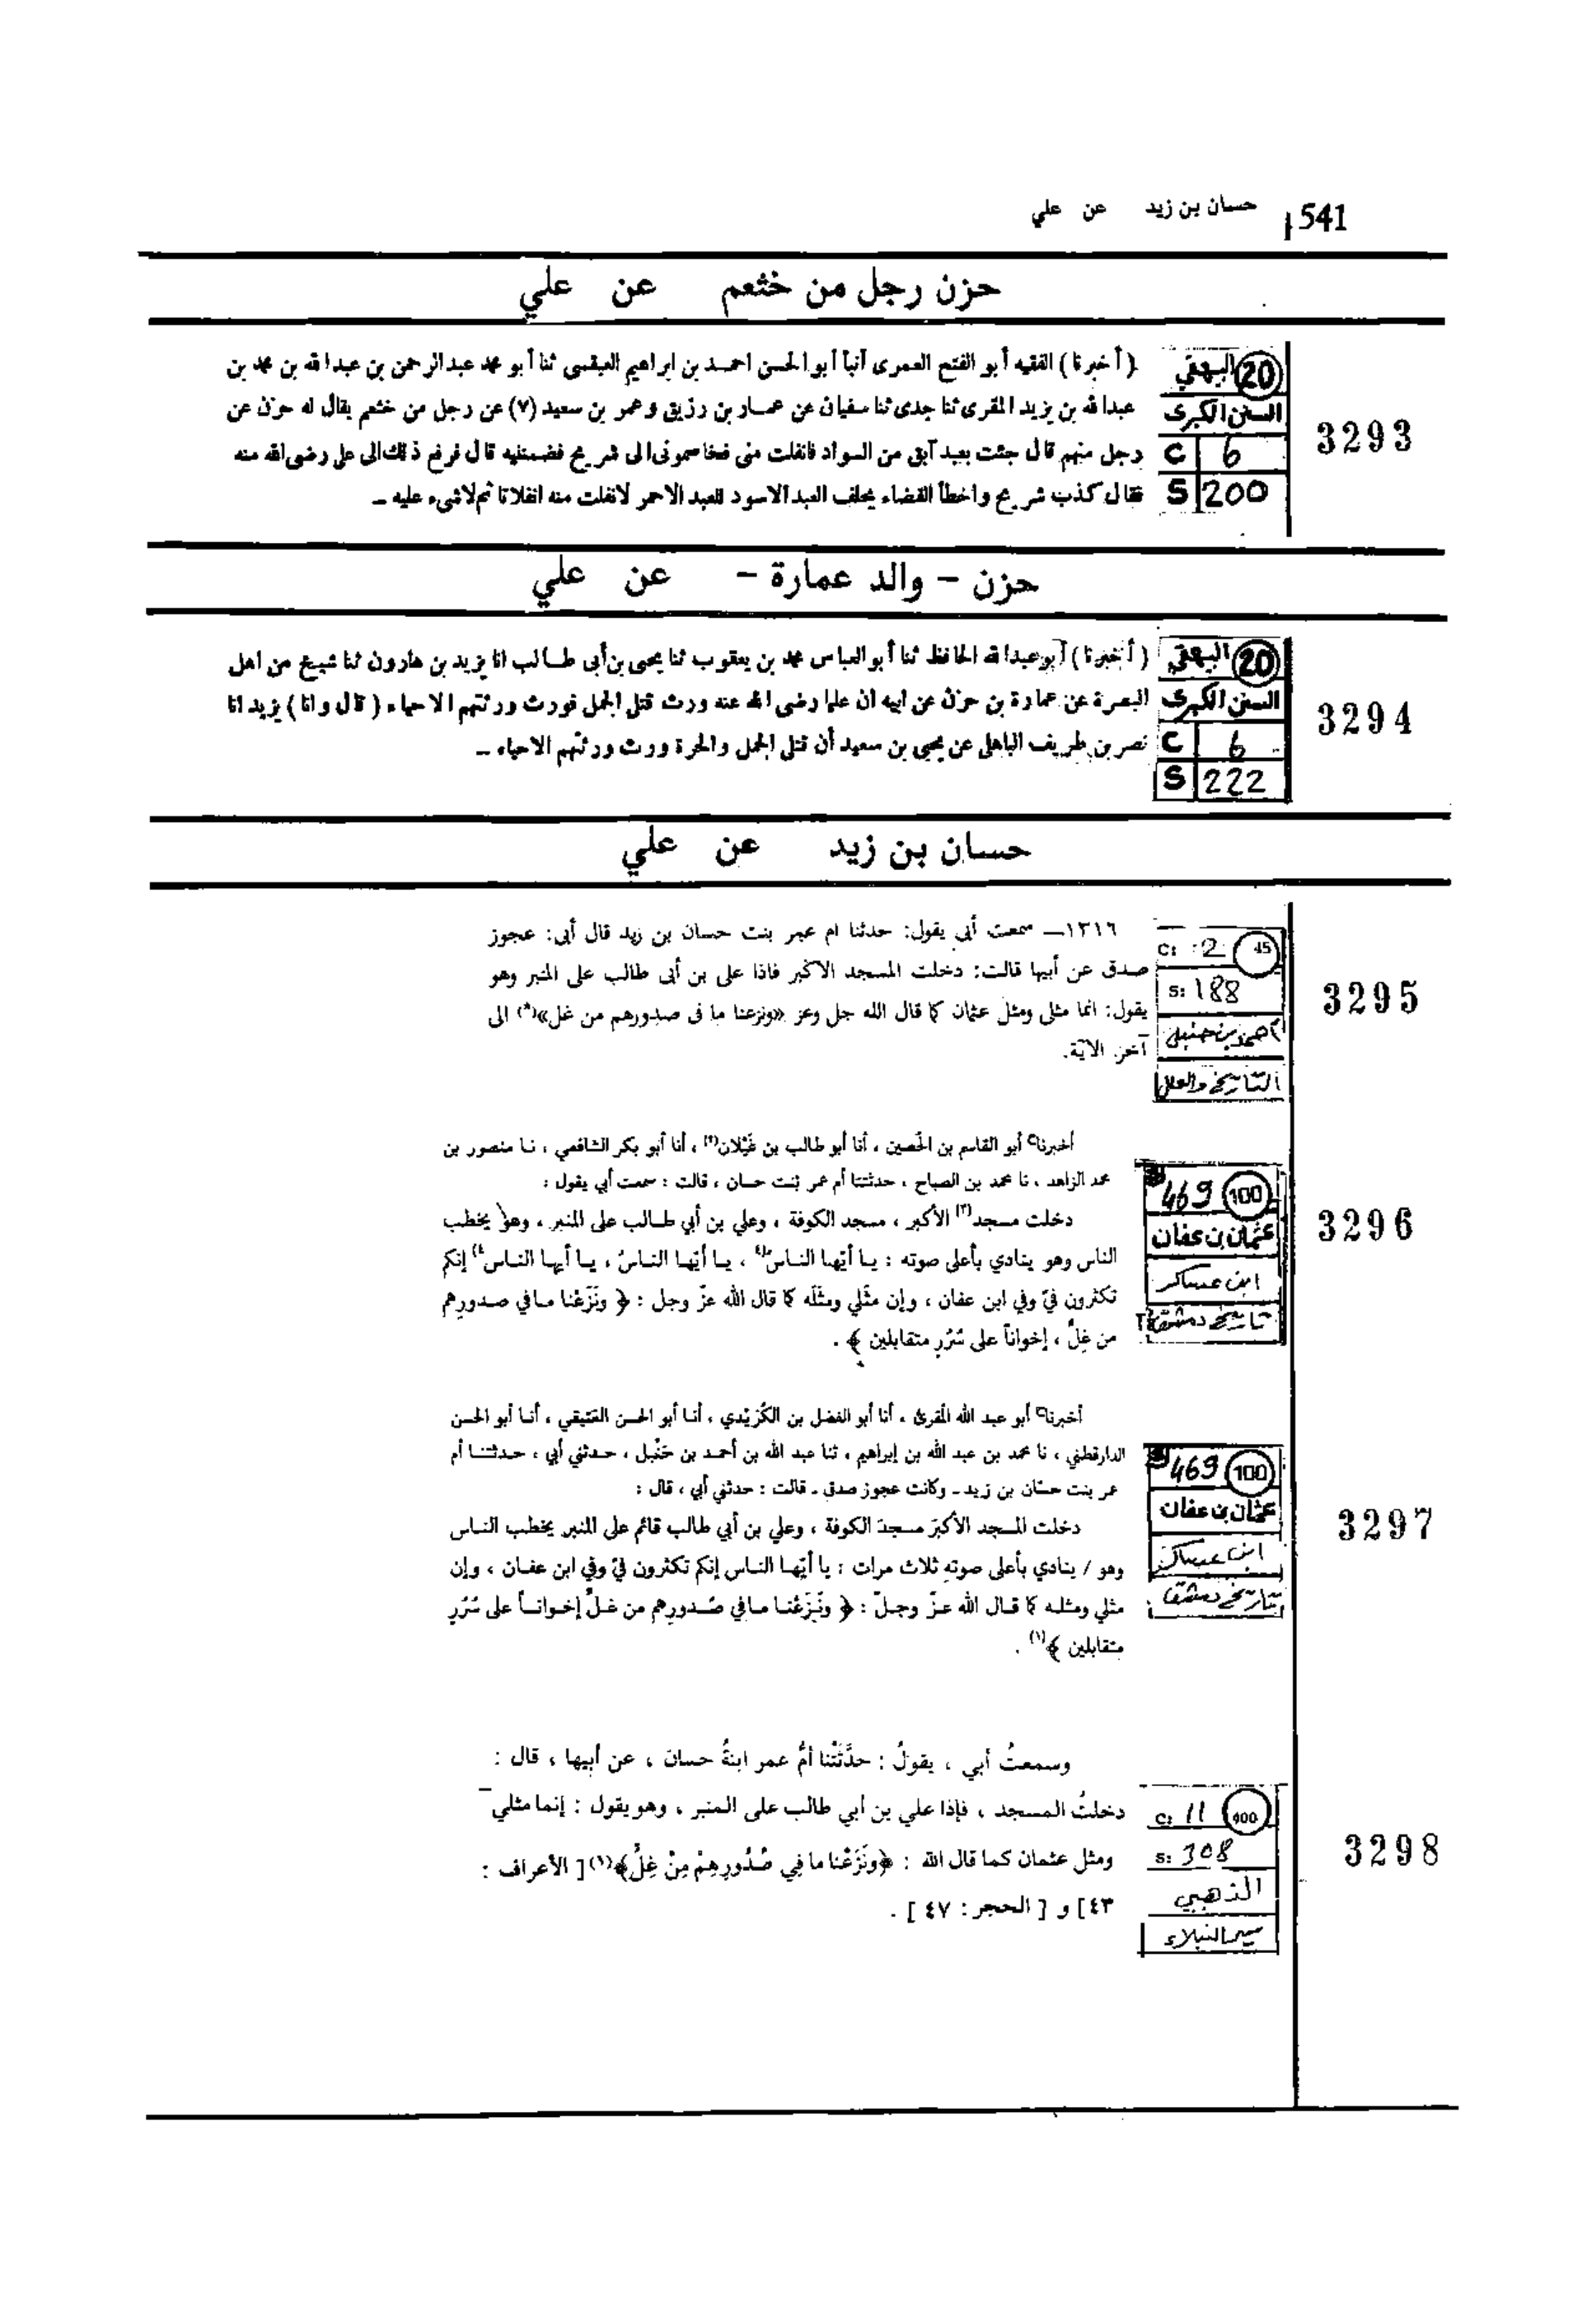 541 حسان بن زيد عن علي
حزن رجل من خثعم عن علي
3293
20 البيهقي
السنن الكبرى
C 6
S 200
(أخبرنا) الفقيه أبو الفتح العمرى أنبأ أبو الحسن احمد بن ابراهيم العبقسى ثنا أبو محمد عبدالرحمن بن عبدالله بن محمد بن
عبدالله بن يزيد المقرى ثنا جدى ثنا سفيان عن عمار بن رزيق وعمر بن سعيد (٧) عن رجل من خثعم يقال له حزن عن
رجل منهم قال جئت بعبد آبق من السواد فانفلت منى فخاصمونى الى شريح فضمننيه قال فرفع ذلك الى على رضى الله عنه
فقال كذب شريح واخطأ القضاء يحلف العبد الاسود للعبد الاحمر لانفلت منه انفلاتا ثم لاشىء عليه ــ
حزن – والد عمارة – عن علي
3294
20 البيهقي
السنن الكبرى
C 6
S 222
(أخبرنا) أبو عبدالله الحافظ ثنا أبو العباس محمد بن يعقوب ثنا يحيى بن أبى طالب انا يزيد بن هارون ثنا شيخ من اهل
البصرة عن عمارة بن حزن عن ابيه ان عليا رضى الله عنه ورث قتلى الجمل فورث ورثتهم الاحياء (قال وانا) يزيد انا
نصر بن طريف الباهلى عن يحيى بن سعيد أن قتلى الجمل والحرة وورث ورثتهم الاحياء ــ
حسان بن زيد عن علي
3295
C: 2 45
S: 188
احمد بن حنبل
التاريخ والعلل
١٣١٦ــ سمعت أبي يقول: حدثنا ام عمر بنت حسان بن زيد قال أبى: عجوز
صدق عن أبيها قالت: دخلت المسجد الاكبر فاذا على بن أبى طالب على المنبر وهو
يقول: انما مثلى ومثل عثمان كما قال الله جل وعز «ونزعنا ما فى صدورهم من غل»(*) الى
آخر الآية.
3296
469 100
عثمان بن عفان
ابن عساكر
تاريخ دمشق
أخبرنا أبو القاسم بن الحُصين ، أنا أبو طالب بن غَيْلان(٢) ، أنا أبو بكر الشافعي ، نا منصور بن
محمد الزاهد ، نا محمد بن الصباح ، حدثتنا أم عمر بنت حسان ، قالت : سمعت أبي يقول :
دخلت مسجد(٣) الأكبر ، مسجد الكوفة ، وعلي بن أبي طالب على المنبر ، وهو يخطب
الناس وهو ينادي بأعلى صوته : يا أيّها الناس(٤) ، يا أيّها الناسُ ، يا أيها الناس(٤) إنكم
تكثرون فيّ وفي ابن عفان ، وإن مثَلي ومثَلَه كما قال الله عزّ وجل : ﴿ ونَزَعْنا ما في صدورِهم
من غِلٍّ ، إخواناً على سُرُرٍ متقابلين ﴾ .
3297
469 100
عثمان بن عفان
ابن عساكر
تاريخ دمشق
أخبرنا أبو عبد الله المقرئ ، أنا أبو الفضل بن الكُرَيْدي ، أنا أبو الحسن العَتيقي ، أنا أبو الحسن
الدارقطني ، نا محمد بن عبد الله بن إبراهيم ، ثنا عبد الله بن أحمد بن حَنْبل ، حدثني أبي ، حدثتنا أم
عمر بنت حسّان بن زيد ـ وكانت عجوز صدق ـ قالت : حدثني أبي ، قال :
دخلت المسجد الأكبرَ مسجدَ الكوفة ، وعلي بن أبي طالب قائم على المنبر يخطب الناس
وهو / ينادي بأعلى صوتِه ثلاث مرات : يا أيّها الناس إنكم تكثرون فيّ وفي ابن عفان ، وإن
مثلي ومثله كما قال الله عزّ وجلّ : ﴿ ونَزَعْنا ما في صُدورِهم من غلٍّ إخواناً على سُرُرٍ
متقابلين ﴾(١) .
3298
C: 11 100
S: 308
الذهبي
سير النبلاء
وسمعتُ أبي ، يقولُ : حدَّثَتْنا أمُّ عمر ابنةُ حسان ، عن أبيها ، قال :
دخلتُ المسجد ، فإذا علي بن أبي طالب على المنبر ، وهو يقول : إنما مثلي
ومثل عثمان كما قال الله : ﴿ونَزَعْنا ما فِي صُدُورِهِمْ مِنْ غِلٍّ﴾(١) [ الأعراف :
٤٣ ] و [ الحجر : ٤٧ ] .